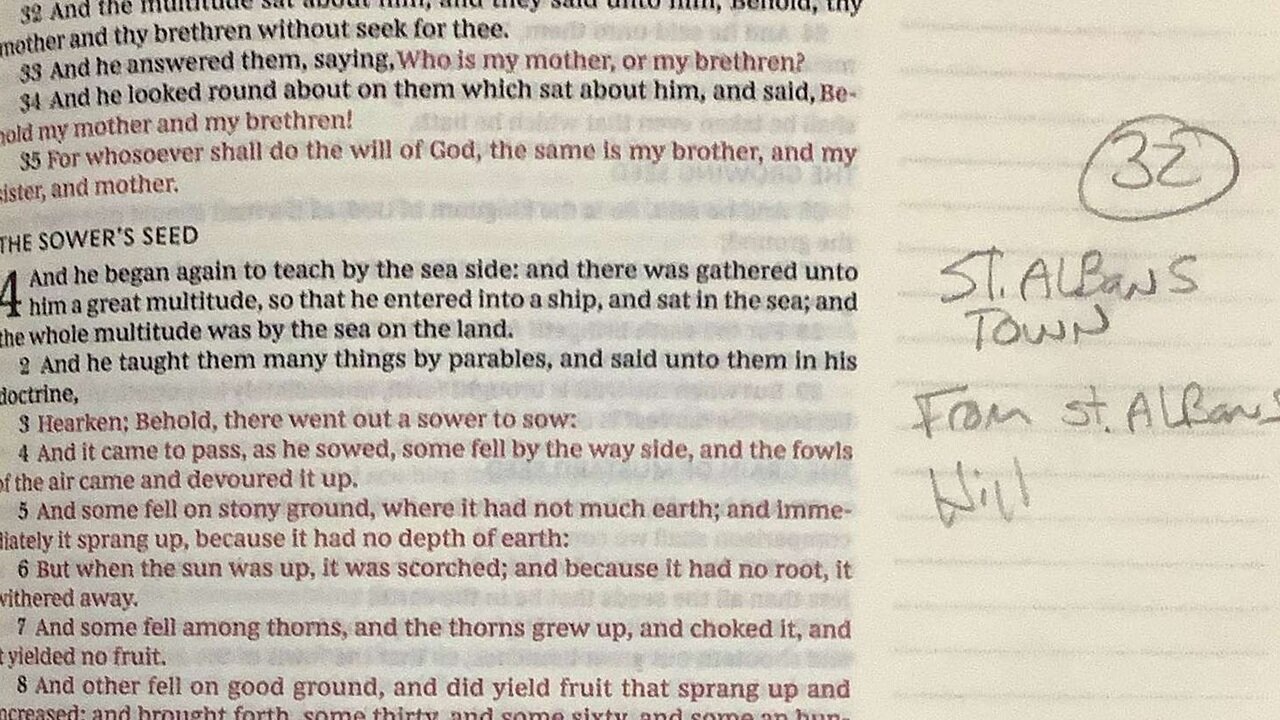 32 And the multitude sat about him, and they said unto him, Behold, thy
mother and thy brethren without seek for thee.
33 And he answered them, saying, Who is my mother, or my brethren?
34 And he looked round about on them which sat about him, and said, Be-
hold my mother and my brethren!
35 For whosoever shall do the will of God, the same is my brother, and my
sister, and mother.
THE SOWER'S SEED
4 And he began again to teach by the sea side: and there was gathered unto
him a great multitude, so that he entered into a ship, and sat in the sea; and
the whole multitude was by the sea on the land.
2 And he taught them many things by parables, and said unto them in his
doctrine,
3 Hearken; Behold, there went out a sower to sow:
4 And it came to pass, as he sowed, some fell by the way side, and the fowls
of the air came and devoured it up.
5 And some fell on stony ground, where it had not much earth; and imme-
diately it sprang up, because it had no depth of earth:
6 But when the sun was up, it was scorched; and because it had no root, it
withered away.
7 And some fell among thorns, and the thorns grew up, and choked it, and
it yielded no fruit.
8 And other fell on good ground, and did yield fruit that sprang up and
increased; and brought forth, some thirty, and some sixty, and some an hun-
32
ST. ALBANS
TOWN
From St. Albans
Hill